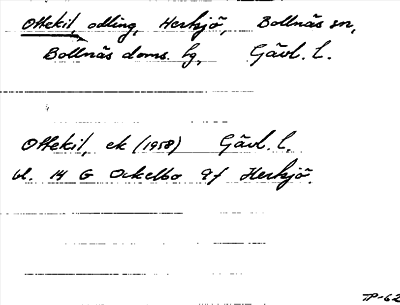 Ottekil, odling, Herkjö, Bollnäs sn,
Bollnäs doms. hg, Gävl. l.
Ottekil, ek (1958) Gävl. l.
bl. 14 G Ockelbo 9f Herkjö.
TP-62